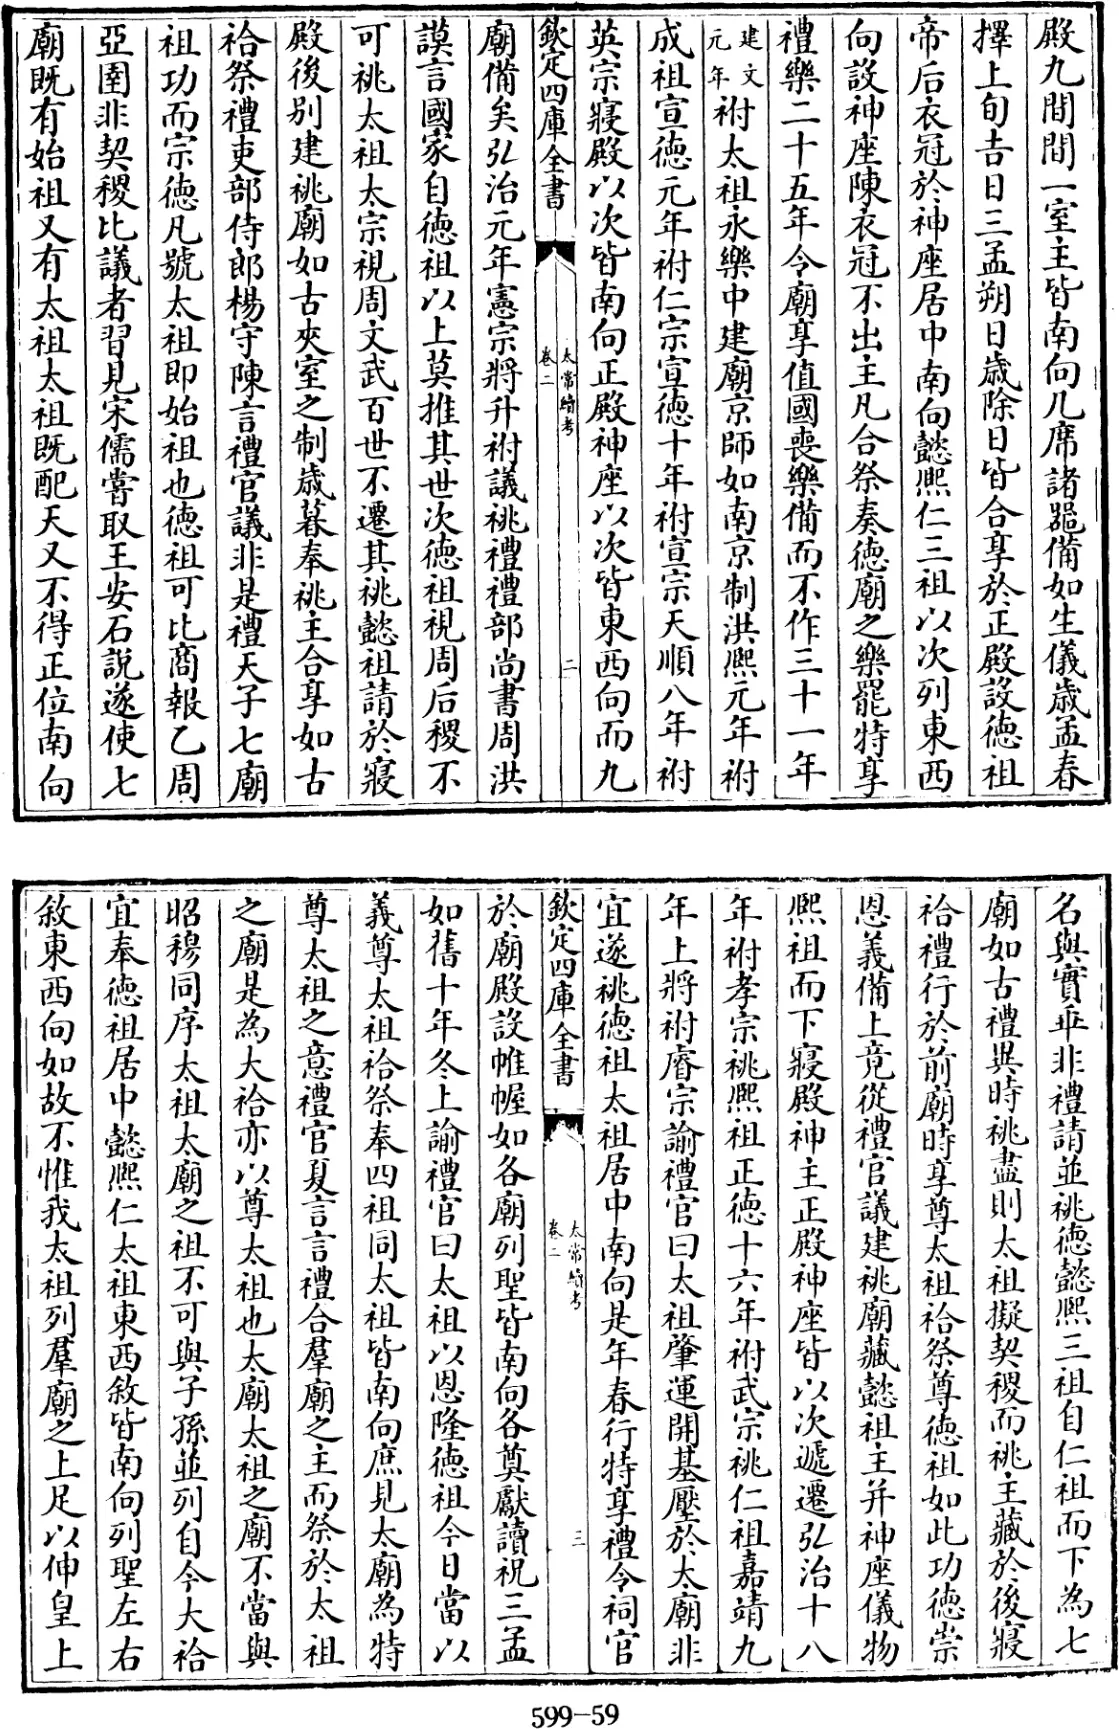 殿九間間一室主皆南向几席諸器備如生儀歲孟春
擇上旬吉日三孟朔日歲除日皆合享於正殿設德祖
帝后衣冠於神座居中南向懿熙仁三祖以次列東西
向設神座陳衣冠不出主凡合祭奏德廟之樂罷特享
禮樂二十五年令廟享值國喪樂備而不作三十一年
建文元年祔太祖永樂中建廟京師如南京制洪熙元年祔
成祖宣德元年祔仁宗宣德十年祔宣宗天順八年祔
英宗寢殿以次皆南向正殿神座以次皆東西向而九
欽定四庫全書 太常續考 卷二 二
廟備矣弘治元年憲宗將升祔議祧禮禮部尚書周洪
謨言國家自德祖以上莫推其世次德祖視周后稷不
可祧太祖太宗視周文武百世不遷其祧懿祖請於寢
殿後別建祧廟如古夾室之制歲暮奉祧主合享如古
祫祭禮吏部侍郎楊守陳言禮官議非是禮天子七廟
祖功而宗德凡號太祖即始祖也德祖可比商報乙周
亞圉非契稷比議者習見宋儒嘗取王安石說遂使七
廟既有始祖又有太祖太祖既配天又不得正位南向
名與實乖非禮請並祧德懿熙三祖自仁祖而下為七
廟如古禮異時祧盡則太祖擬契稷而祧主藏於後寢
祫禮行於前廟時享尊太祖祫祭尊德祖如此功德崇
恩義備上竟從禮官議建祧廟藏懿祖主并神座儀物
熙祖而下寢殿神主正殿神座皆以次遞遷弘治十八
年祔孝宗祧熙祖正德十六年祔武宗祧仁祖嘉靖九
年上將祔睿宗諭禮官曰太祖肇運開基壓於太廟非
宜遂祧德祖太祖居中南向是年春行特享禮令祠官
欽定四庫全書 太常續考 卷二 三
於廟殿設帷幄如各廟列聖皆南向各奠獻讀祝三孟
如舊十年冬上諭禮官曰太祖以恩隆德祖今日當以
義尊太祖祫祭奉四祖同太祖皆南向庶見太廟為特
尊太祖之意禮官夏言言禮合羣廟之主而祭於太祖
之廟是為大祫亦以尊太祖也太廟太祖之廟不當與
昭穆同序太祖太廟之祖不可與子孫並列自今大祫
宜奉德祖居中懿熙仁太祖東西敘皆南向列聖左右
敘東西向如故不惟我太祖列羣廟之上足以伸皇上
599-59